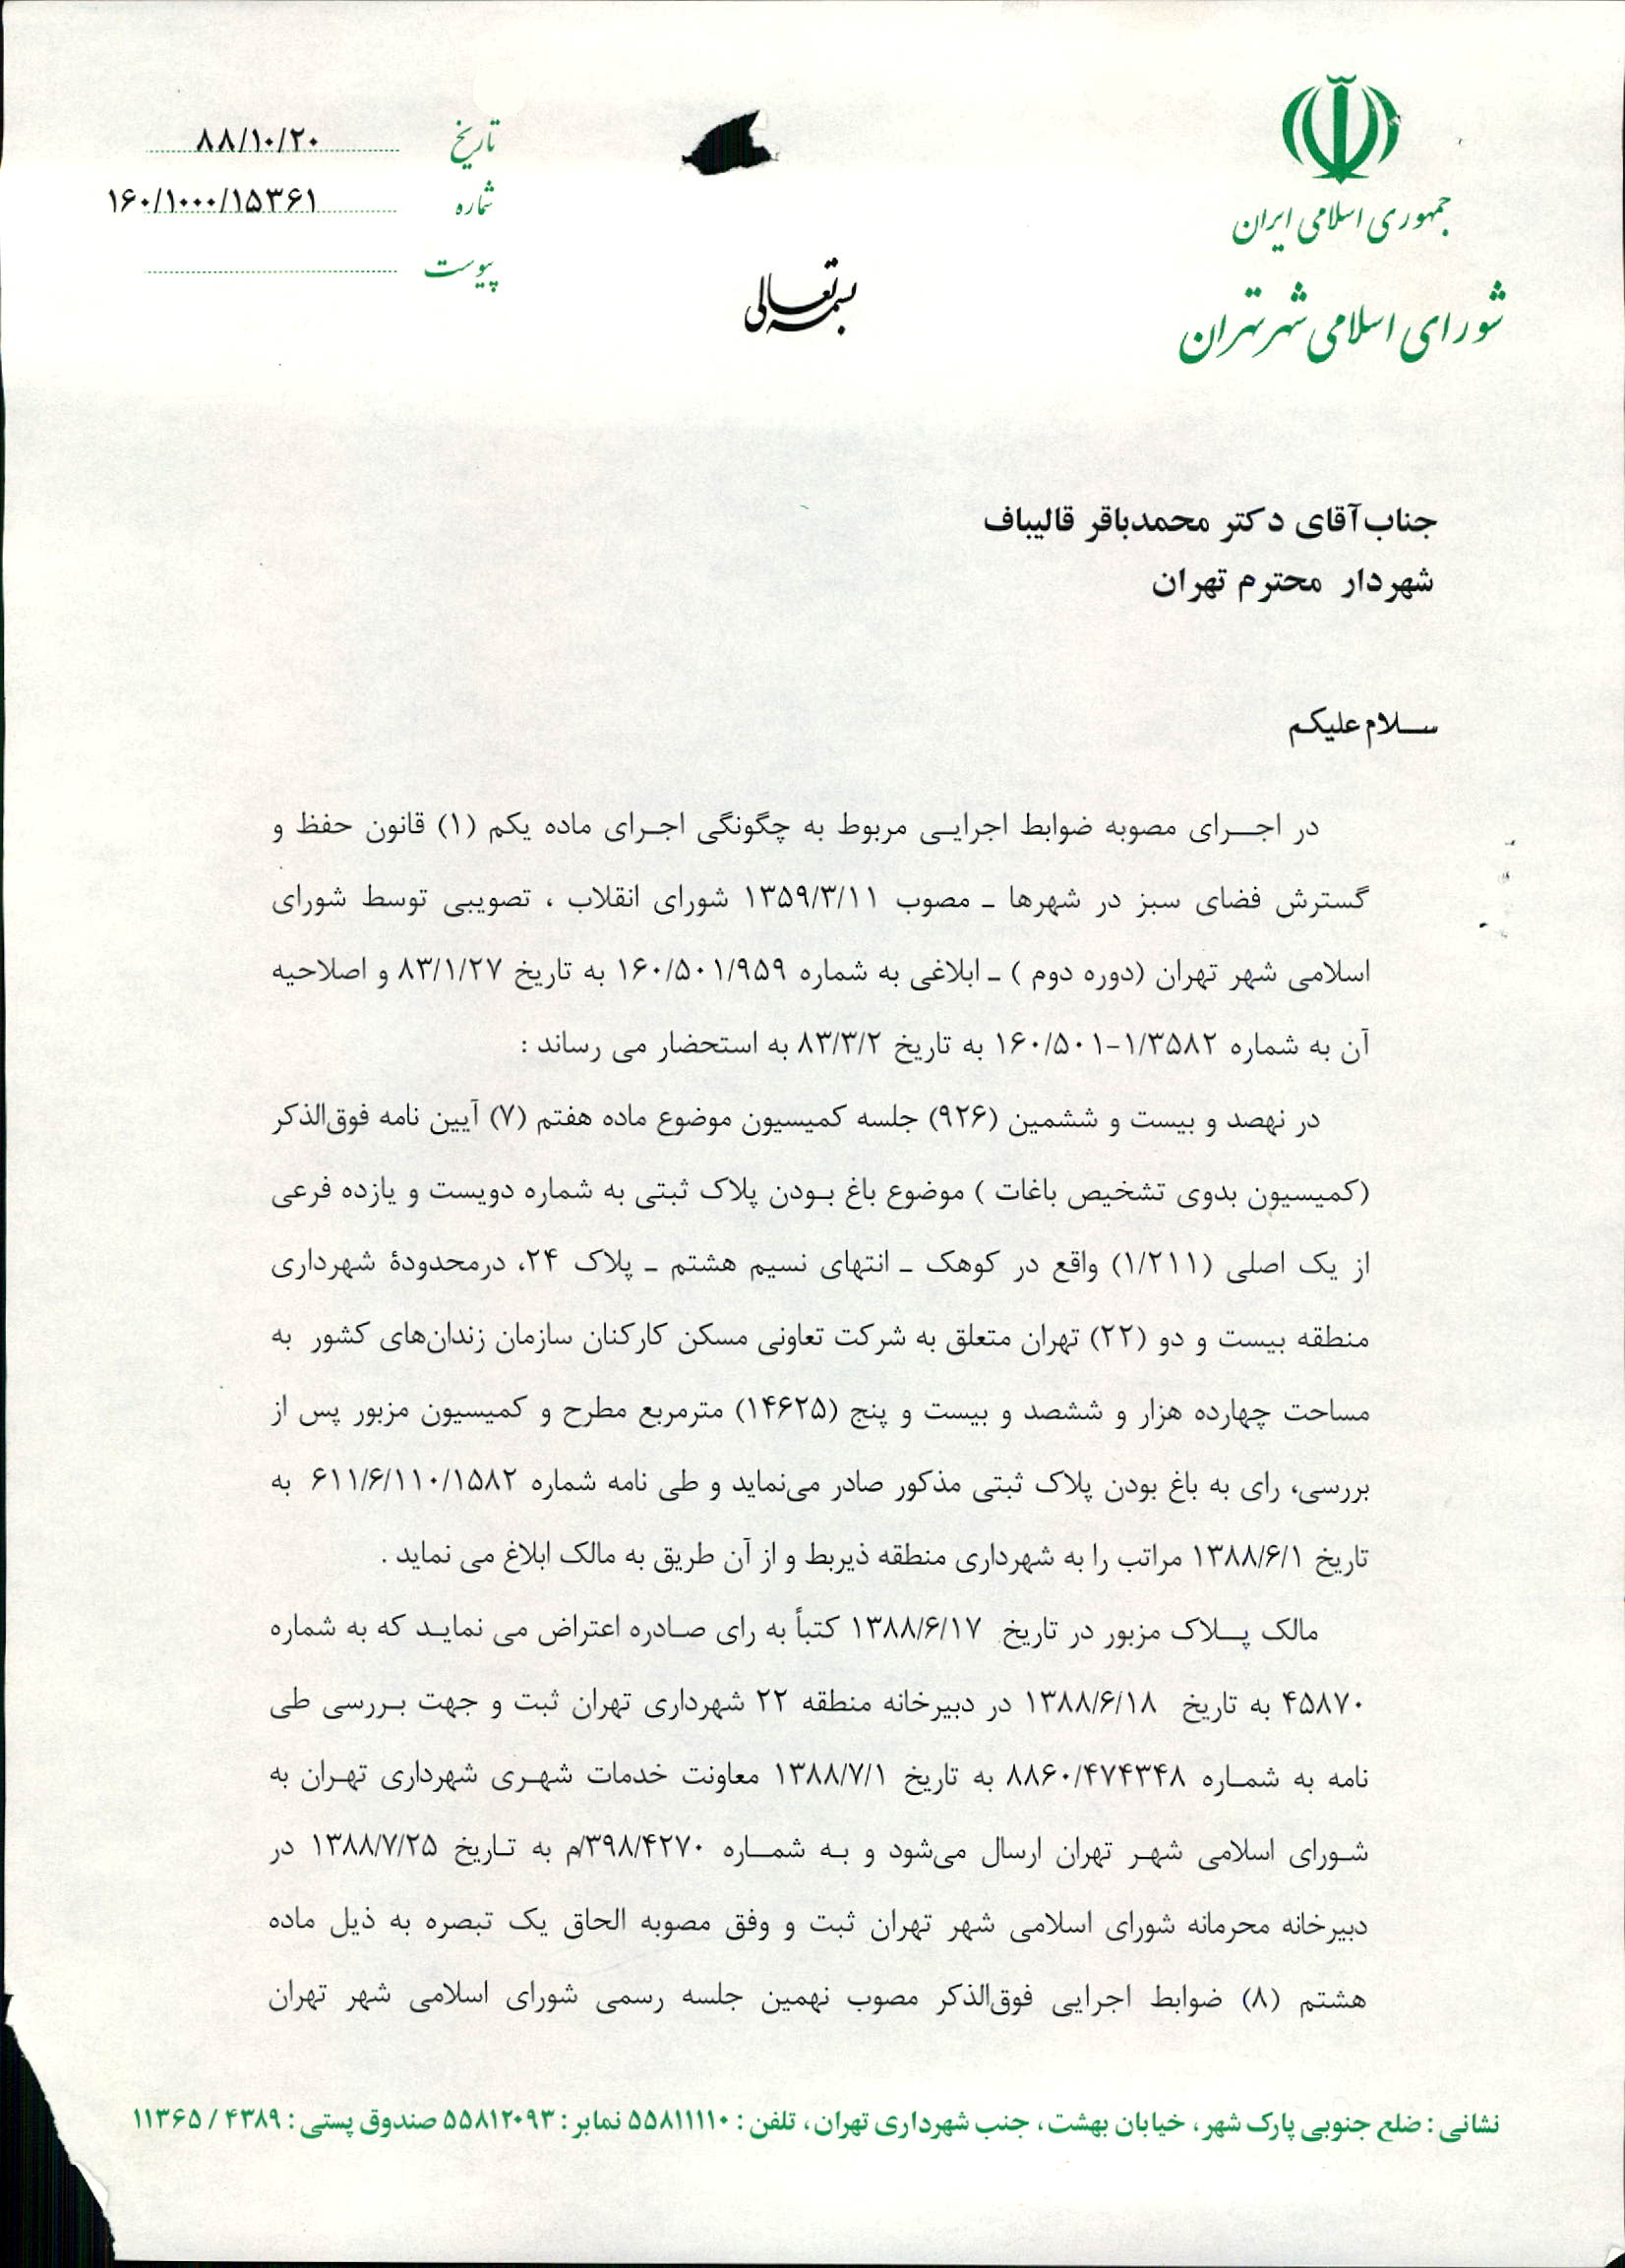 جمهوری اسلامی ایران
شورای اسلامی شهر تهران
تاریخ ۸۸/۱۰/۲۰
شماره ۱۶۰/۱۰۰۰/۱۵۳۶۱
پیوست
بسمه تعالی
جناب آقای دکتر محمدباقر قالیباف
شهردار محترم تهران
سلام علیکم
در اجرای مصوبه ضوابط اجرایی مربوط به چگونگی اجرای ماده یکم (۱) قانون حفظ و
گسترش فضای سبز در شهرها ـ مصوب ۱۳۵۹/۳/۱۱ شورای انقلاب ، تصویبی توسط شورای
اسلامی شهر تهران (دوره دوم ) ـ ابلاغی به شماره ۱۶۰/۵۰۱/۹۵۹ به تاریخ ۸۳/۱/۲۷ و اصلاحیه
آن به شماره ۱۶۰/۵۰۱-۱/۳۵۸۲ به تاریخ ۸۳/۳/۲ به استحضار می رساند :
در نهصد و بیست و ششمین (۹۲۶) جلسه کمیسیون موضوع ماده هفتم (۷) آیین نامه فوق‌الذکر
(کمیسیون بدوی تشخیص باغات ) موضوع باغ بودن پلاک ثبتی به شماره دویست و یازده فرعی
از یک اصلی (۱/۲۱۱) واقع در کوهک ـ انتهای نسیم هشتم ـ پلاک ۲۴، درمحدودهٔ شهرداری
منطقه بیست و دو (۲۲) تهران متعلق به شرکت تعاونی مسکن کارکنان سازمان زندان‌های کشور به
مساحت چهارده هزار و ششصد و بیست و پنج (۱۴۶۲۵) مترمربع مطرح و کمیسیون مزبور پس از
بررسی، رای به باغ بودن پلاک ثبتی مذکور صادر می‌نماید و طی نامه شماره ۶۱۱/۶/۱۱۰/۱۵۸۲ به
تاریخ ۱۳۸۸/۶/۱ مراتب را به شهرداری منطقه ذیربط و از آن طریق به مالک ابلاغ می نماید .
مالک پلاک مزبور در تاریخ ۱۳۸۸/۶/۱۷ کتباً به رای صادره اعتراض می نماید که به شماره
۴۵۸۷۰ به تاریخ ۱۳۸۸/۶/۱۸ در دبیرخانه منطقه ۲۲ شهرداری تهران ثبت و جهت بررسی طی
نامه به شماره ۸۸۶۰/۴۷۴۳۴۸ به تاریخ ۱۳۸۸/۷/۱ معاونت خدمات شهری شهرداری تهران به
شورای اسلامی شهر تهران ارسال می‌شود و به شماره ۳۹۸/۴۲۷۰/م به تاریخ ۱۳۸۸/۷/۲۵ در
دبیرخانه محرمانه شورای اسلامی شهر تهران ثبت و وفق مصوبه الحاق یک تبصره به ذیل ماده
هشتم (۸) ضوابط اجرایی فوق‌الذکر مصوب نهمین جلسه رسمی شورای اسلامی شهر تهران
نشانی : ضلع جنوبی پارک شهر ، خیابان بهشت، جنب شهرداری تهران ، تلفن : ۵۵۸۱۱۱۱۰ نمابر : ۵۵۸۱۲۰۹۳ صندوق پستی : ۴۳۸۹ / ۱۱۳۶۵